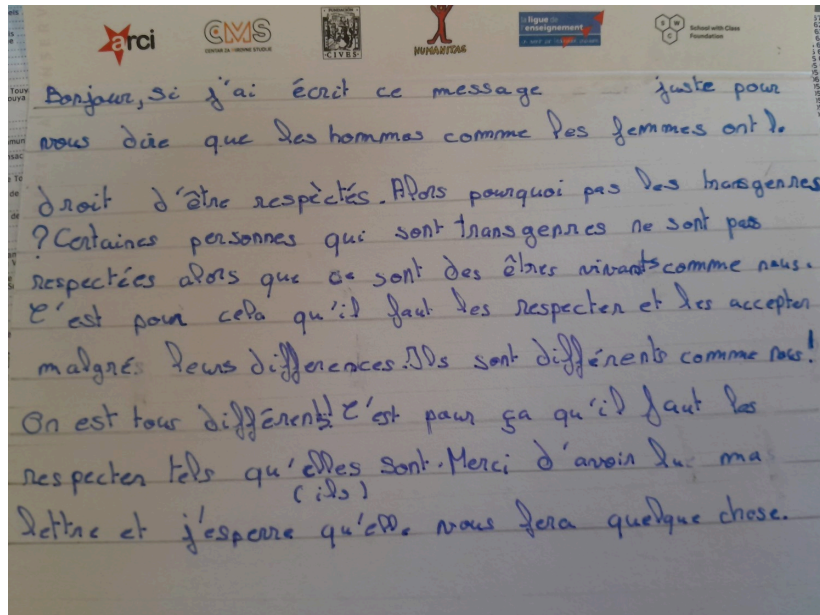 arci
CMS
CENTAR ZA MIROVNE STUDIJE
FUNDACIÓN
CIVES
HUMANITAS
la ligue de
l'enseignement
School with Class
Foundation
Bonjour, si j'ai écrit ce message juste pour
vous dire que les hommes comme les femmes ont le
droit d'être respèctés. Alors pourquoi pas les transgenres
? Certaines personnes qui sont transgenres ne sont pas
respectées alors que ce sont des êtres vivants comme nous.
C'est pour cela qu'il faut les respecter et les accepter
malgrés leurs différences. Ils sont différents comme nous!
On est tous différents! C'est pour ça qu'il faut les
respecter tels qu'elles sont. Merci d'avoir lu ma
(ils)
lettre et j'esperre qu'elle vous fera quelque chose.